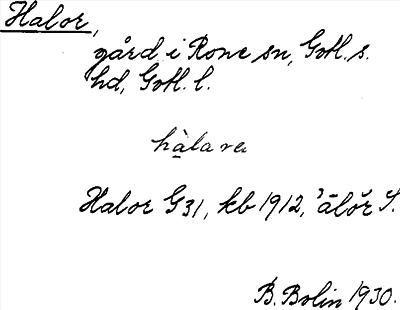 Halor,
gård i Rone sn, Gotl. s.
hd, Gotl. l.
Halor G31, kb 1912, ³ālǒr S.
B. Bolin 1930.